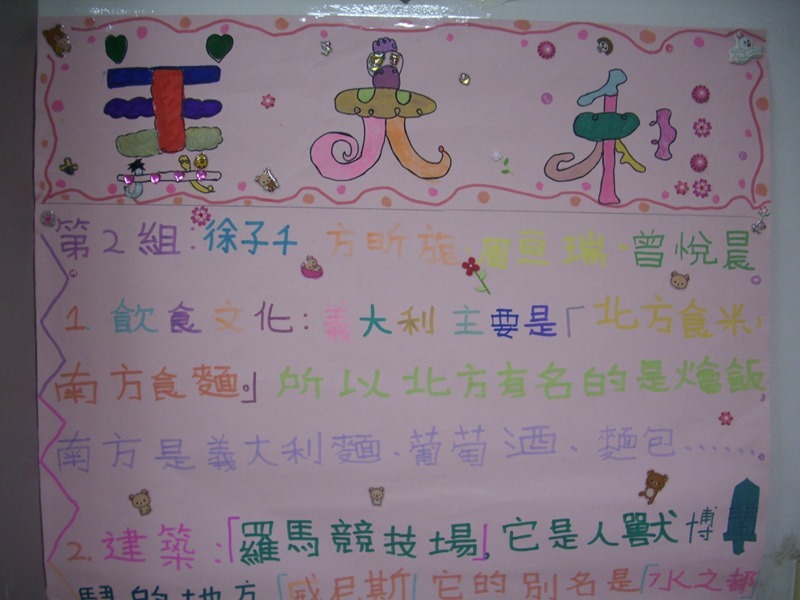 義大利
第2組:徐子千 方昕 周亘瑞.曾悅晨
1.飲食文化:義大利主要是「北方食米,
南方食麵。」所以北方有名的是燴飯,
南方是義大利麵、葡萄酒、麵包......
2.建築:「羅馬競技場」,它是人獸博
鬥的地方「威尼斯」它的別名是「水之都